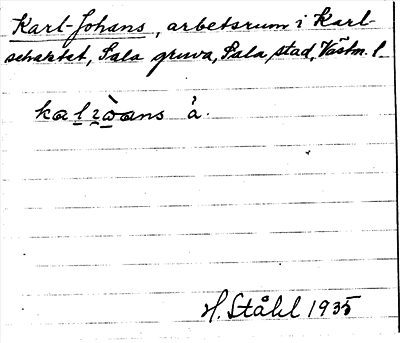 Karl-Johans, arbetsrum i Karl-
schaktet, Sala gruva, Sala stad, Västm. l.
H. Ståhl 1935